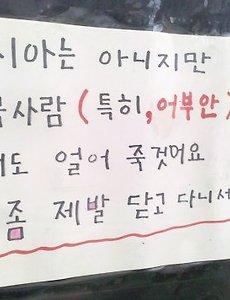 시아는 아니지만
사람 (특히,어부안)
도 얼어 죽것어요
좀 제발 닫고 다니세